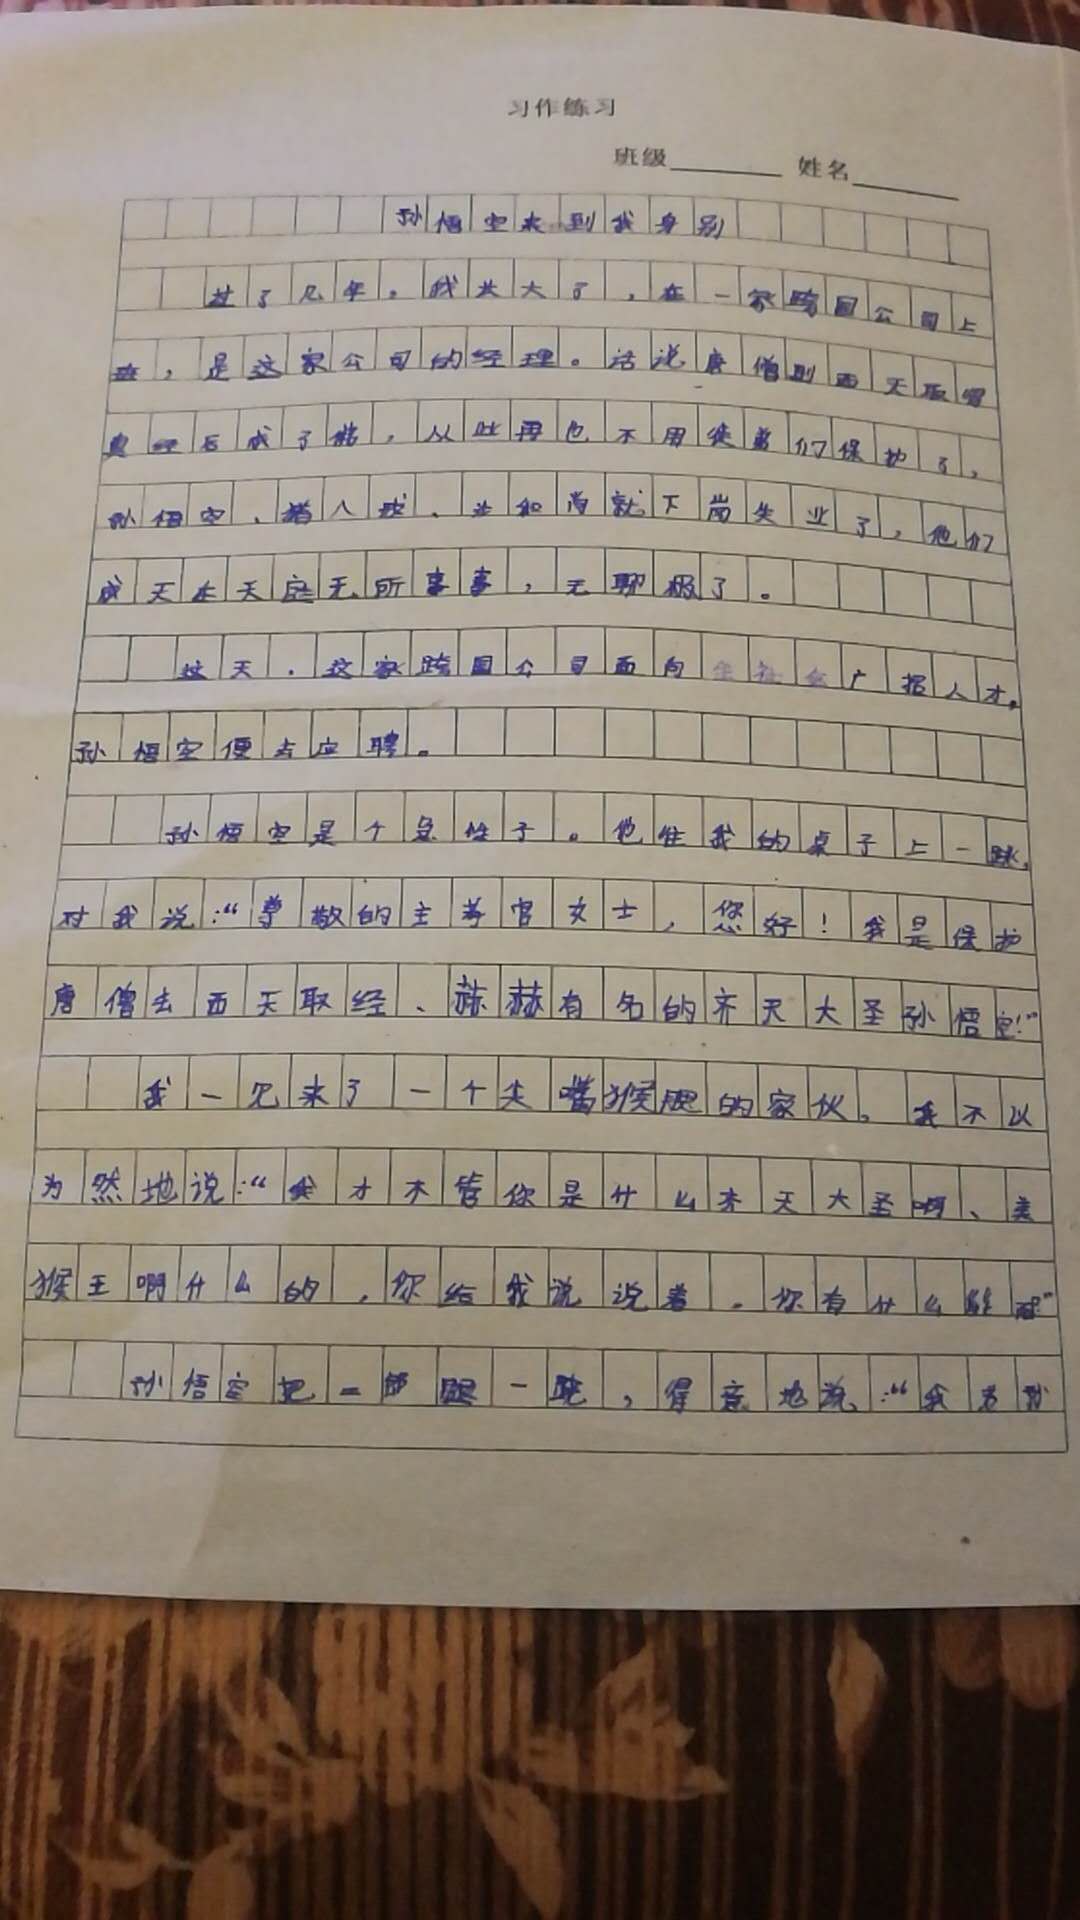 习作练习
班级 姓名
孙悟空来到我身别
过了几年。我长大了，在一家跨国公司上
班，是这家公司的经理。话说唐僧到西天取
真经后成了佛，从此再也不用徒弟们保护了，
孙悟空、猪八戒、沙和尚就下岗失业了，他们
成天在天庭无所事事，无聊极了。
这天，这家跨国公司面向全社会广招人才。
孙悟空便去应聘。
孙悟空是个急性子。他往我的桌子上一跳，
对我说：“尊敬的主考官女士，您好！我是保护
唐僧去西天取经、赫赫有名的齐天大圣孙悟空！”
我一见来了一个尖嘴猴腮的家伙。我不以
为然地说：“我才不管你是什么齐天大圣啊、美
猴王啊什么的，你给我说说看。你有什么能耐”
孙悟空把二郎腿一跷，得意地说：“我老孙